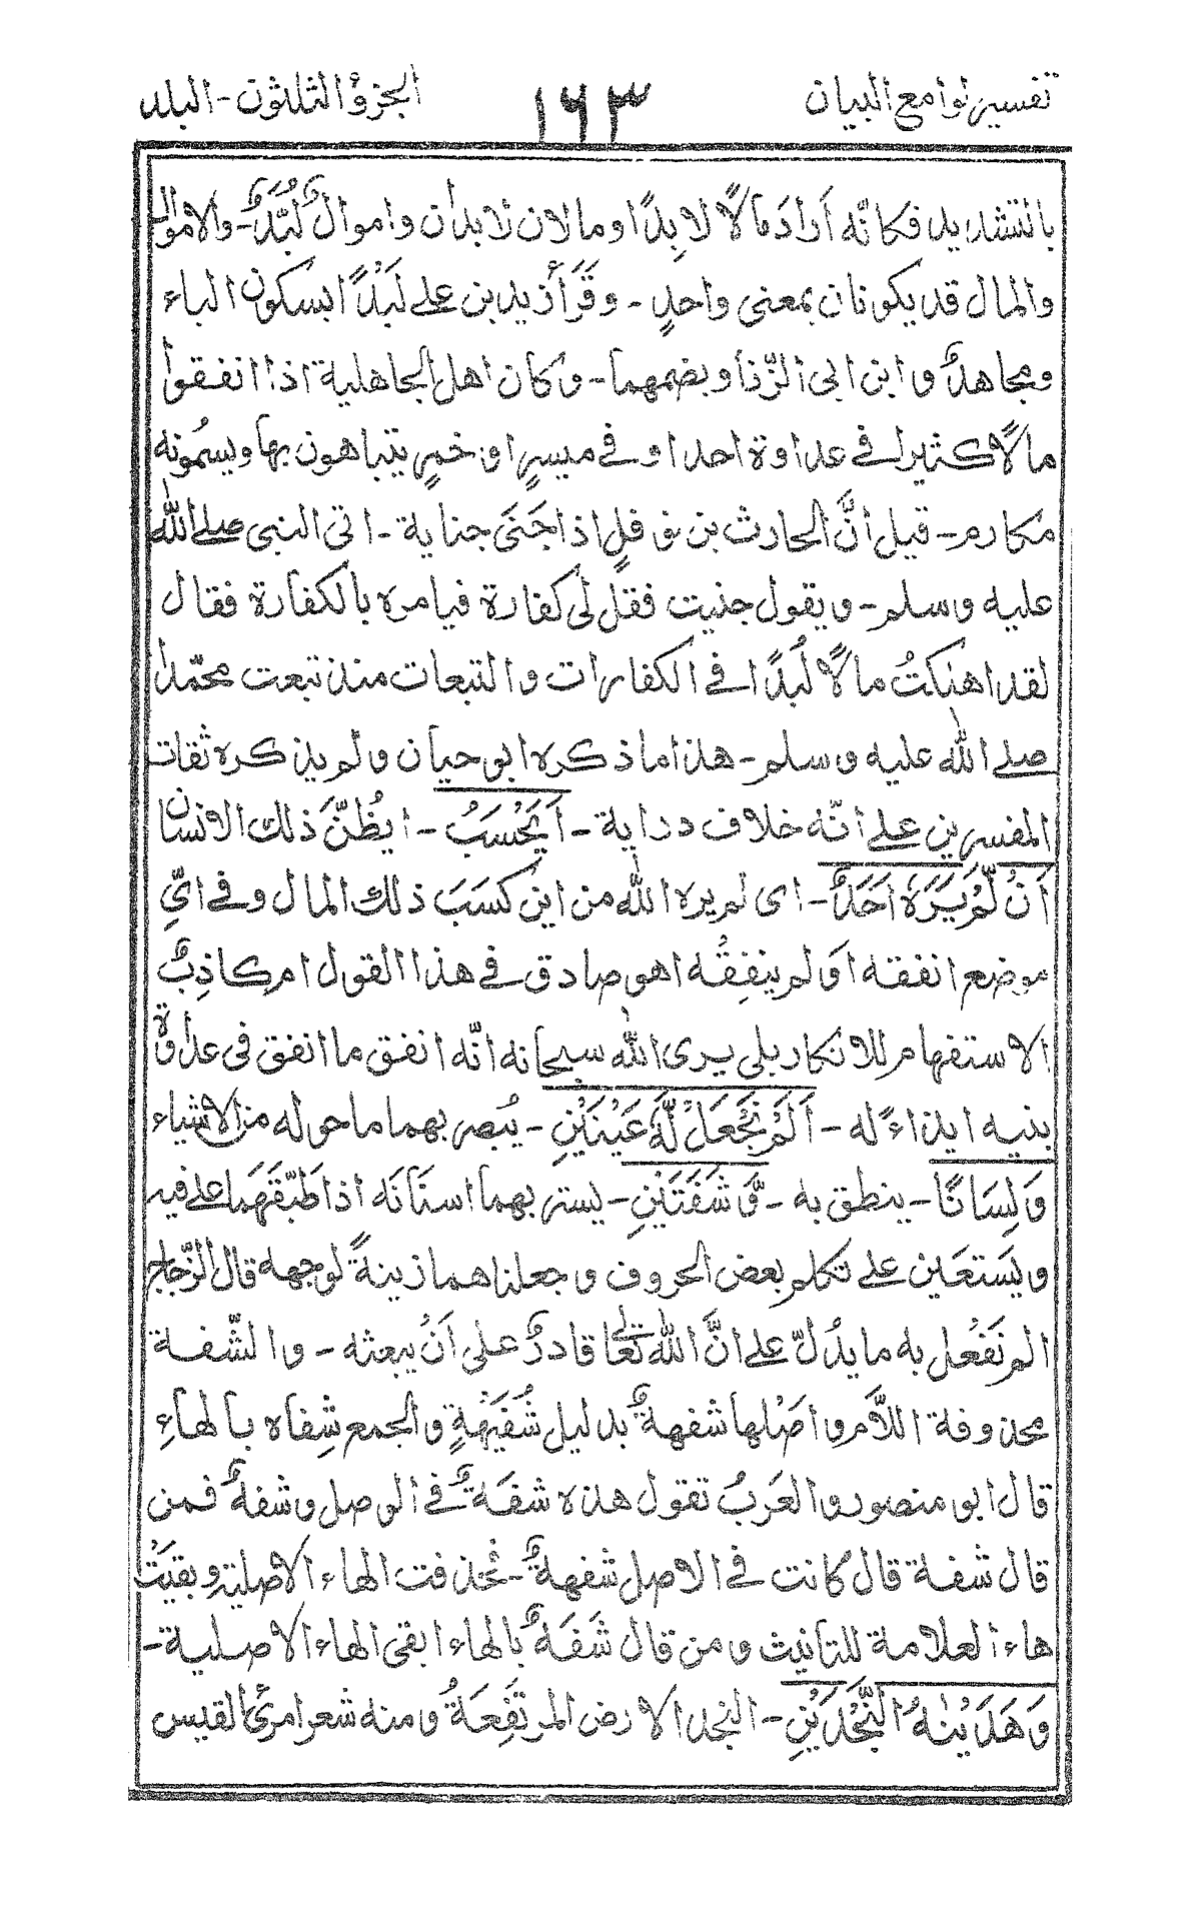 تفسير لوامع البيان ١٦٣ الجزؤ الثلثون - البلد
بالتشديد فكانّه اَرادَ مالًا لابِدًا ومالان لابدان واموالٌ لُبَّدٌ - والاموال
والمال قد يكونان بمعنى واحدٍ - وقَرَأ زيد بن على لَبْدًا بسكون الباء
ومجاهدٌ وابن ابى الزّناد وبضمهما - وكان اهل الجاهلية اذا انفقوا
مالًا كثيرا فى عداوة احد او فى ميسرٍ او خمرٍ يتباهون بها ويسمُّونه
مكارم - قيل انَّ الحارث بن نوفلٍ اذا جَنَىَ جناية - اتى النبى صلے الله
عليه وسلم - ويقول جنيت فقل لى كفارة فيامره بالكفارة فقال
لقد اهلكتُ مالًا لُبَدًا فى الكفارات والتبعات منذ تبعت محمّدا
صلے الله عليه وسلم - هذا ما ذكره ابو حيان ولم يذكره ثقات
المفسرين على انّه خلاف دراية - اَيَحْسَبُ - ايظُنَّ ذلك الانسان
اَنْ لَّمْ يَرَهٗ اَحَدٌ - اى لم يره الله من اين كسَبَ ذلك المال وفى اىِّ
موضع انفقه اَو لم ينفِقْه اهو صادق فى هذا القول ام كاذِبٌ
الاستفهام للانكار بلى يرى الله سبحانه انّه انفق ما انفق فى عداوة
بنيه ايذاءً له - اَلَمْ نَجْعَلْ لَّهٗ عَيْنَيْنِ - يُبصر بهما ما حوله من الاشياء
وَلِسَانًا - ينطق به - وَّشَفَتَيْنِ - يستر بهما اسنَانَه اذا طَبَّقَهَما على فيه
ويَستَعَين على تكلم بعض الحروف وجعلناهما زينةً لوجهه قال الزّجاج
الم نَفْعل به ما يدُلّ على انَّ الله تعالى قادرٌ على اَنْ يبعثه - والشّفة
محذوفة اللاَّم واصْلها شفهةٌ بدليل شُفَيْهةٍ والجمع شِفاه بالهاءِ
قال ابو منصور والعَربُ تقول هذه شفَةٌ فى الوصل وشفهٌ فمن
قال شفة قال كانت فى الاصل شفهةٌ - فحُذفت الهاء الاصلية وبقيَتْ
هاء العلامة للتانيث ومن قال شَفَهٌ بالهاء ابقى الهاء الاصلية -
وَهَدَيْنٰهُ النَّجْدَيْنِ - النجد الارض المرتَفِعَةُ ومنه شعر امرئ القيس